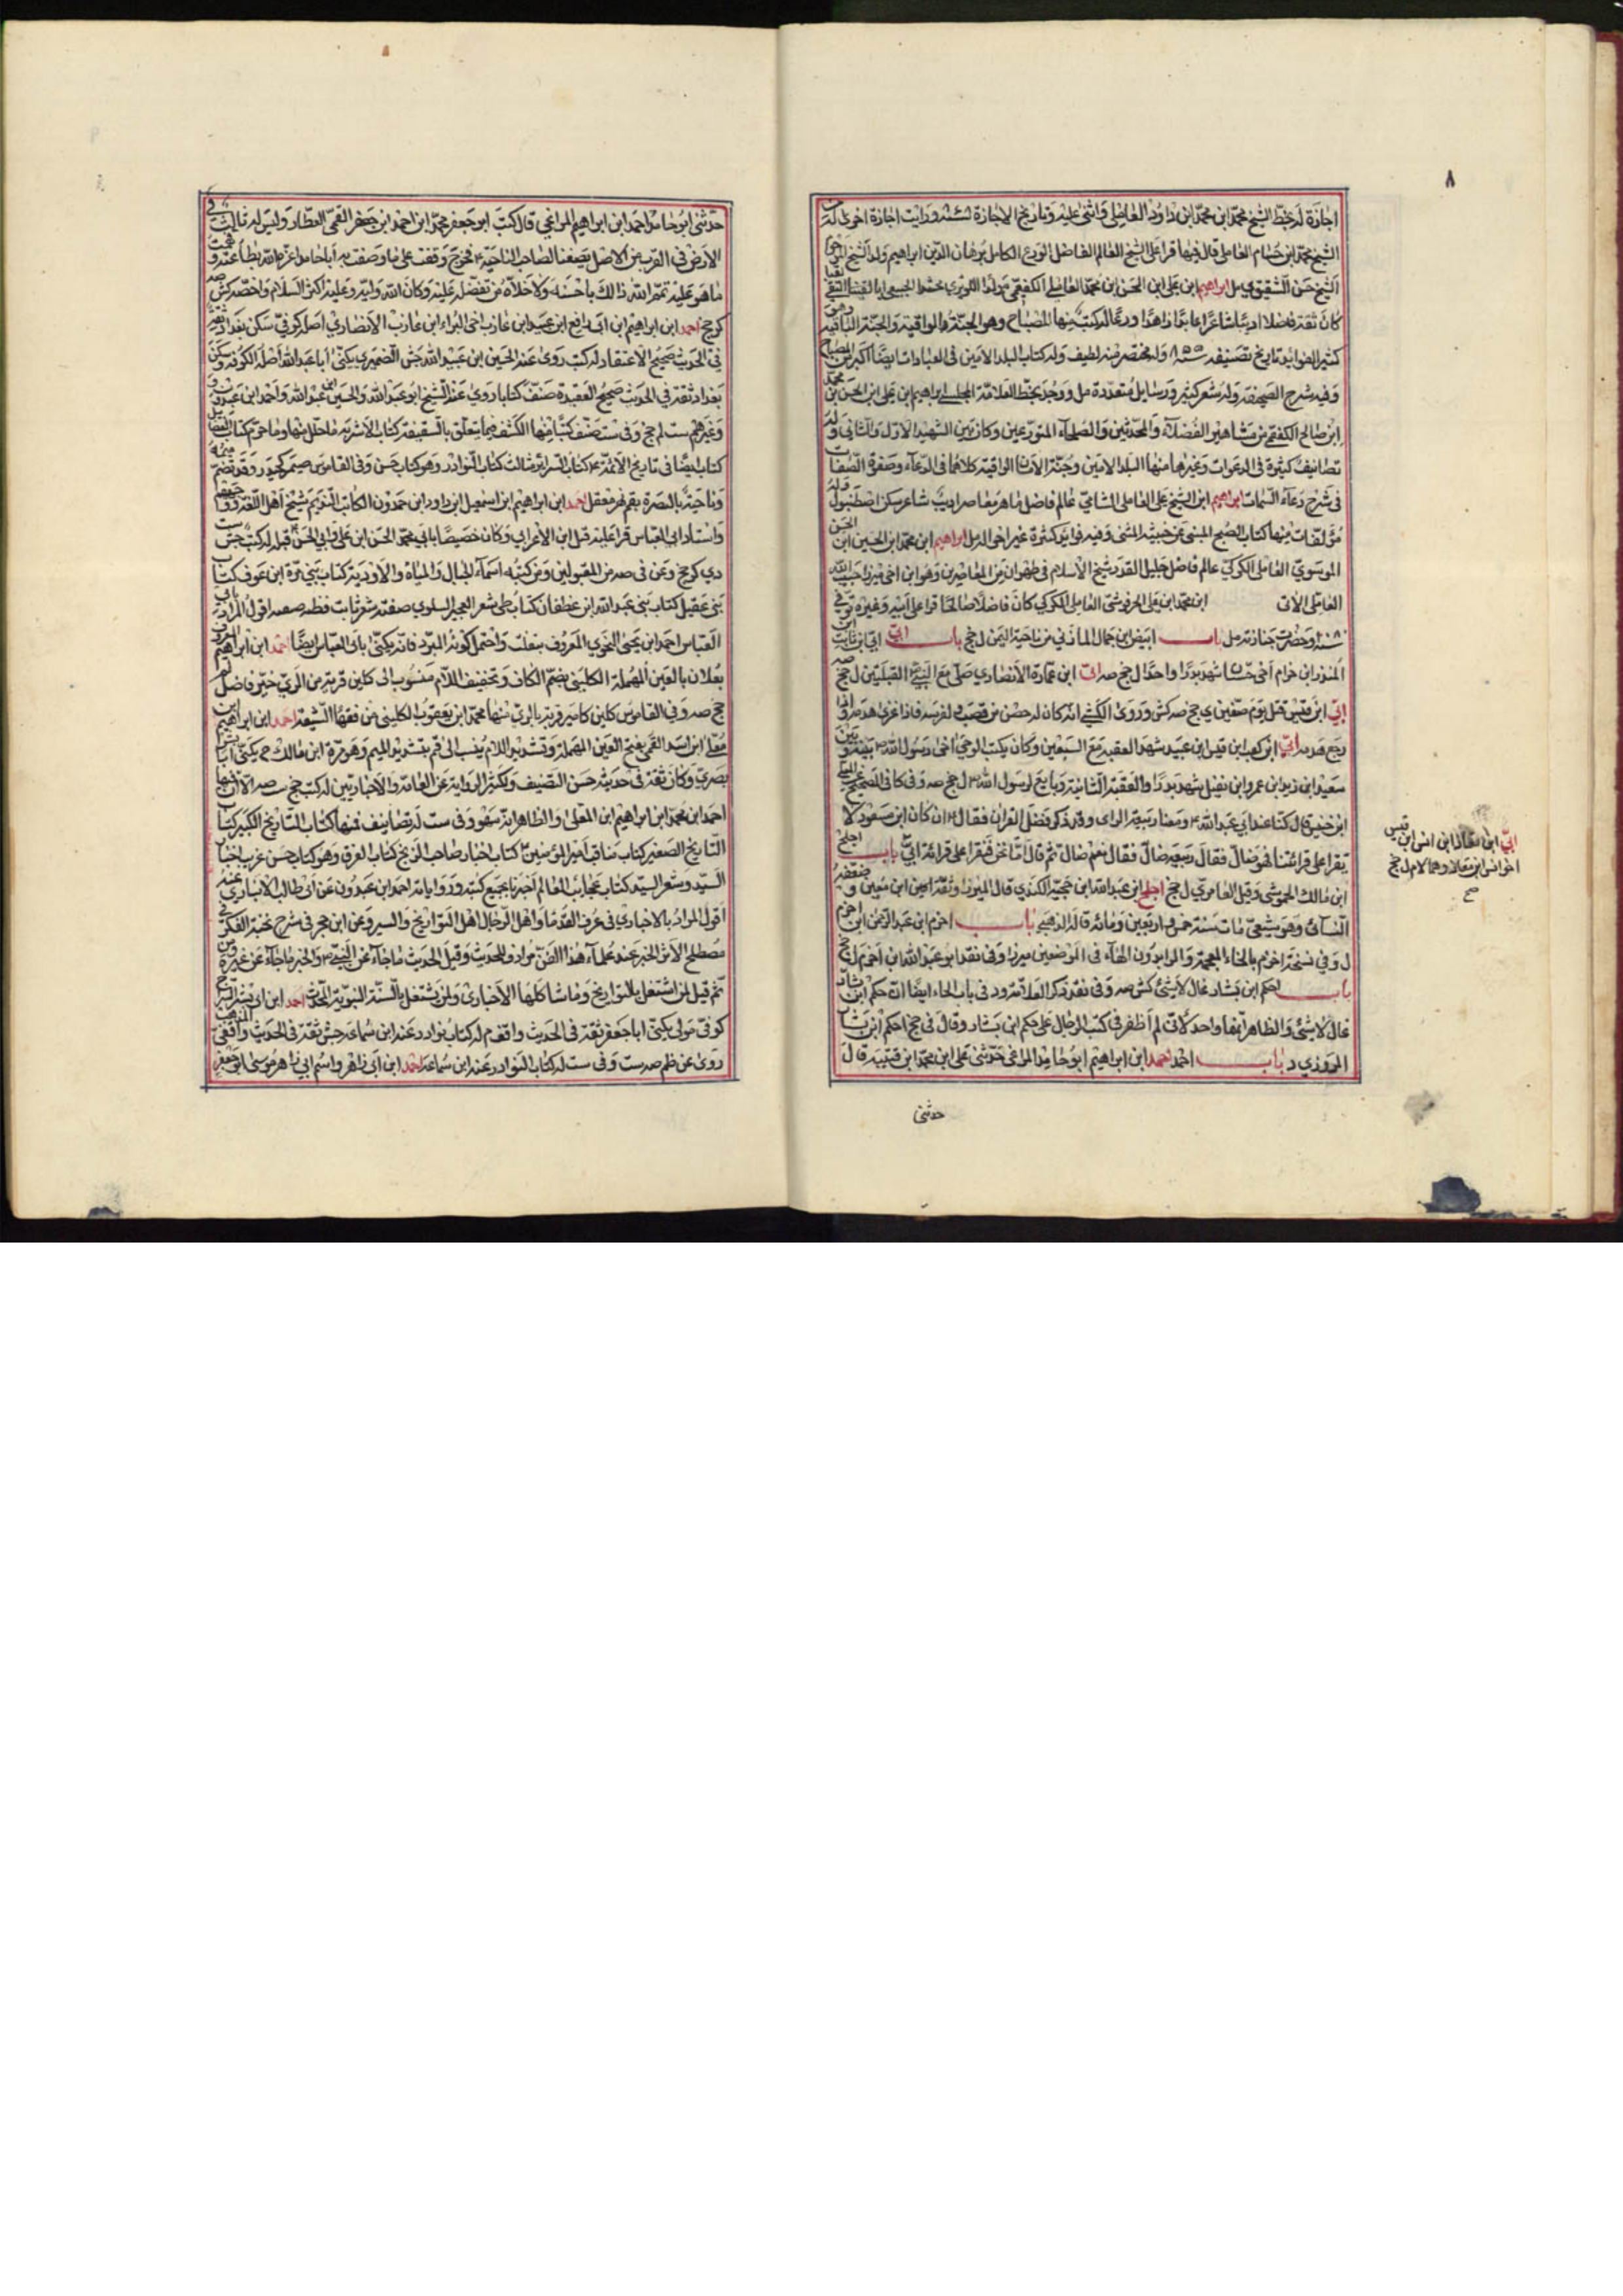 ٨
اجازة له بخط الشيخ محمد ابن محمد ابن داود العاملي واثنى عليه وتاريخ الاجازة ورايت اجازة اخرى له من
الشيخ محمد ابن خنام العاملي قال فيها قرا على الشيخ العالم الفاضل الورع الكامل برهان الدين ابراهيم ولد الشيخ
الشيخ حسن الشقيفي مل ابراهيم ابن على ابن الحسن ابن محمد العاملي الكفعمي مولدا اللويزي محتدا الجبعي ابا لقبا التقي
كان ثقة فاضلا اديبا شاعرا عابدا زاهدا ورعا له كتب منها المصباح وهو الجنة الواقية والجنة الباقية وهو
كثير الفوائد تاريخ تصنيفه سنة ٨ وله مختصر منه لطيف وله كتاب البلد الامين فى العبادات ايضا اكبر من المصباح
وفيه شرح الصحيفة وله شعر كثير ورسايل متعددة مل ووجد بخط العلامة المجلسي ابراهيم ابن على ابن الحسن بن محمد
ابن صالح الكفعمي من مشاهير الفضلاء والمحدثين والصلحاء المتورعين وكان بين الشهيد الاول والثاني وله
تصانيف كثيرة فى الدعوات وغيرها منها البلد الامين وجنة الامان الواقية كلاهما فى الدعاء وصفوة الصفات
فى شرح دعاء السمات ابراهيم ابن الشيخ على العاملي الشامي عالم فاضل ماهر معاصر اديب شاعر سكن اصطنبول وله
مؤلفات منها كتاب الصبح المنبي عن حيثية المتنبي وفيه فوائد كثيرة غير اخى الدمل ابراهيم ابن محمد ابن الحسين ابن الحسن
الموسوي العاملي الكركي عالم فاضل جليل القدر شيخ الاسلام فى طهران من المعاصرين وهو ابن اخى ميرزا حبيب الله
العاملي الاتى ابن محمد ابن على الحرفوشى العاملي الكركي كان فاضلا صالحا قرا على ابيه وغيره توفي
وحضرت جنازته مل باب ابيض ابن حمال الماذني من ناحية اليمن ل جخ باب ابي ابي ابن ثابت ابن
المنذر ابن حزام اخى حسان شهد بدرا واحدا ل جخ صه ابى ابن عمارة الانصاري صلى مع النبى القبلتين ل جخ صه
ابي ابن قيس قتل يوم صفين ى جخ صه كش وروى الكشي انه كان له حصن من قصب ولفرسه فاذا غزى هدمه واذا
رجع هدمه ابي ابن كعب ابن قيس ابن عبيد شهد العقبة مع السبعين وكان يكتب الوحى اخى رسول الله بينه وبين
سعيد ابن زيد ابن عمرو ابن نفيل شهد بدرا والعقبة الثانية وبايع لرسول الله ل جخ صه وفى كا فى الصحيح
ابن خنيس قال كنا عند ابي عبد الله ومعنا ربيعة الراى وقد ذكر فضل القران فقال ان كان ابن مسعود لا
يقرا على قرائتنا فهو ضال فقال ربيعة ضال فقال نعم ضال ثم قال اما نحن فنقرا على قرائة ابي باب اجلح
ابن مالك الحموشى وقيل العامري ل جخ اجلح ابن عبد الله ابن حجية الكندي قال الميزان وثقه ابن معين و ضعفه
النسائى وهو شيعى مات سنة خمس واربعين ومائة قاله الذهبي باب احزم ابن عبد الرحمن ابن احزم
ل وفي نسخة اخزم بالخاء المعجمة والمراد بدون الهاء فى الموضعين ميرزا وفى نقد ابو عبد الله ابن اخزم ل جخ
باب احكم ابن بشار غال لا شئ كش صه وفى نقد ذكر العلامة ود فى باب الحاء ايضا ان حكم ابن بشار
غال لا شئ والظاهر انهما واحد لانى لم اظفر فى كتب الرجال على حكم ابن بشار وقال فى جخ احكم ابن بشار
المروزي د باب احمد احمد ابن ابراهيم ابو حامد المراغى حدثنى على ابن محمد ابن قتيبة قال
حدثنى
ابي ابن معاذ ابن انس ابن قيس
اخو انس ابن معاذ وهما لام ل جخ
حدثنى ابو حامد احمد ابن ابراهيم المراغى قال كتب ابو جعفر محمد ابن احمد ابن جعفر القمى العطار وليس له ثالث فى
الارض فى القرب من الاصل يصفنا لصاحب الناحية فخرج وقفت على ما وصفت به ابا حامد اعزه الله بطاعته وفهمت
ما هو عليه تمم الله ذالك باحسنه ولا اخلاه من تفضله عليه وكان الله وليه وعليه اكثر السلام واخصه كش صه
كر جخ احمد ابن ابراهيم ابن ابى رافع ابن عبيد ابن عازب اخى البراء ابن عازب الانصاري اصله كوفي سكن بغداد ثقة
في الحديث صحيح الاعتقاد له كتب روى عنه الحسين ابن عبيد الله جش الضميري يكنى ابا عبد الله اصله الكوفة وسكن
بغداد ثقة في الحديث صحيح العقيدة صنف كتابا روى عنه الشيخ ابو عبد الله والحسين ابن عبد الله واحمد ابن عبدون
وغيرهم ست لم جخ وفى ست صنف كتبا منها الكشف فيما يتعلق بالسقيفة كتاب الاشربة ما حلل منها وما حرم كتاب الفضائل
كتاب ايضا فى تاريخ الائمة كتاب السرائر مثالب كتاب النوادر وهو كتاب حسن وفى القاموس صيمر كحيدر وقد تضم ميمه
وناحية بالبصرة بفم نهر معقل احمد ابن ابراهيم ابن اسمعيل ابن داود ابن حمدون الكاتب النديم شيخ اهل اللغة ووجههم
واستاد ابى العباس قرا عليه قبل ابن الاعرابي وكان خصيصا بابي محمد الحسن ابن على وابي الحسن قبله له كتب جش ست
دي كر جخ وعن فى صه من المقبولين ومن كتبه اسماء الجبال والمياه والاودية كتاب بنى مرة ابن عوف كتاب
بنى عقيل كتاب بنى عبد الله ابن غطفان كتاب طى شعر العجير السلولي صنعته شعر ثابت قطنه صنعه اقول المراد بابى
العباس احمد ابن يحيى النحوي المعروف بثعلب واحتمل كونه المبرد فانه يكنى بابى العباس ايضا احمد ابن ابراهيم المعروف
بعلان بالعين المهملة الكلينى بضم الكاف وتخفيف اللام منسوب الى كلين قرية من الري خير فاضل لم
جخ صه وفي القاموس كلين كامير قرية بالري منها محمد ابن يعقوب الكلينى من فقهاء الشيعة احمد ابن ابراهيم ابن
معلى ابن اسد القمى بفتح العين المهملة وتشديد اللام ينسب الى قم بتشديد الميم وهو مرة ابن مالك يكنى ابا بشر
بصري وكان ثقة فى حديثه حسن التصنيف وكثير الرواية عن العامة والاخباريين له كتب جخ ست صه الا ان فيها
احمد ابن محمد ابن ابراهيم ابن المعلى والظاهر انه سهو وفى ست له تصانيف فمنها كتاب التاريخ الكبير كتاب
التاريخ الصغير كتاب مناقب امير المؤمنين كتاب اخبار صاحب الزنج كتاب الفرق وهو كتاب حسن غريب اخبار
السيد وشعر السيد كتاب عجائب العالم اخبرنا بجميع كتبه ورواياته احمد ابن عبدون عن ابى طالب الانباري عنه
اقول المراد بالاخباري فى عرف القدما واهل الرجال اهل التواريخ والسير وعن ابن حجر فى شرح نخبة الفكر فى
مصطلح الاثر الخبر عند علماء هذا الفن مرادف للحديث وقيل الحديث ما جاء عن النبى والخبر ما جاء عن غيره ومن
ثم قيل لمن اشتغل بالتواريخ وما شاكلها الاخباري ولمن يشتغل بالسنة النبوية المحدث احمد ابن ابى بشر السراج
كوفي مولى يكنى ابا جعفر ثقة فى الحديث واقف م له كتاب نوادر عنه ابن سماعة جش ثقة فى الحديث واقفى المذهب
روى عن ظم صه ست وفى ست له كتاب النوادر عنه ابن سماعة احمد ابن ابى زاهر واسم ابى زاهر موسى ابو جعفر